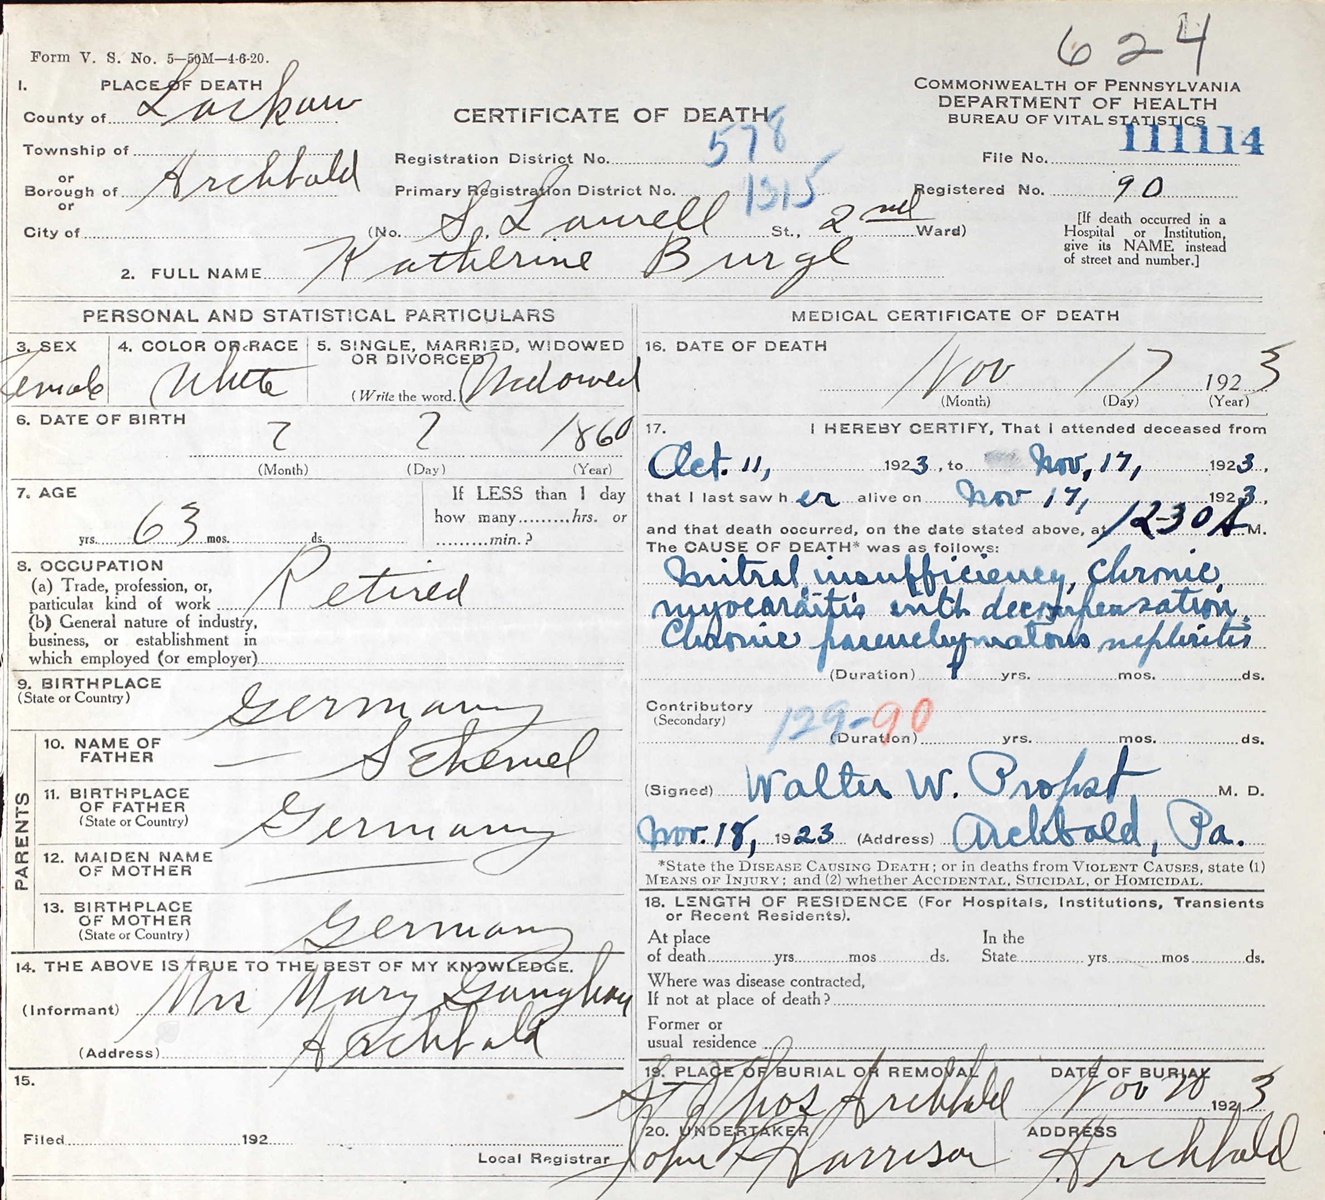 624
Form V. S. No. 5—50M—4-6-20.
1. PLACE OF DEATH
County of Lackaw
Township of
or
Borough of Archbald
or
City of
CERTIFICATE OF DEATH
Registration District No. 578
Primary Registration District No. 1315
(No. S. Laurell St., 2nd Ward)
COMMONWEALTH OF PENNSYLVANIA
DEPARTMENT OF HEALTH
BUREAU OF VITAL STATISTICS
File No. 111114
Registered No. 90
[If death occurred in a
Hospital or Institution,
give its NAME instead
of street and number.]
2. FULL NAME Katherine Burge
PERSONAL AND STATISTICAL PARTICULARS
3. SEX
Female
4. COLOR OR RACE
White
5. SINGLE, MARRIED, WIDOWED
OR DIVORCED
(Write the word.) Widowed
6. DATE OF BIRTH
? ? 1860
(Month) (Day) (Year)
7. AGE
63 yrs. mos. ds.
If LESS than 1 day
how many........hrs. or
........min.?
8. OCCUPATION
(a) Trade, profession, or,
particular kind of work Retired
(b) General nature of industry,
business, or establishment in
which employed (or employer)
9. BIRTHPLACE
(State or Country) Germany
PARENTS
10. NAME OF
FATHER — Schemel
11. BIRTHPLACE
OF FATHER
(State or Country) Germany
12. MAIDEN NAME
OF MOTHER —
13. BIRTHPLACE
OF MOTHER
(State or Country) Germany
14. THE ABOVE IS TRUE TO THE BEST OF MY KNOWLEDGE.
(Informant) Mrs Mary Gaughan
(Address) Archbald
15.
Filed 192
Local Registrar
MEDICAL CERTIFICATE OF DEATH
16. DATE OF DEATH
Nov 17 1923
(Month) (Day) (Year)
17. I HEREBY CERTIFY, That I attended deceased from
Oct. 11, 1923, to Nov, 17, 1923,
that I last saw her alive on Nov 17, 1923,
and that death occurred, on the date stated above, at 1230 A M.
The CAUSE OF DEATH* was as follows:
Mitral insufficiency, chronic
myocarditis with decompensation,
Chronic parenchymatous nephritis
(Duration) 1 yrs. mos. ds.
Contributory
(Secondary)
129-90
(Duration) yrs. mos. ds.
(Signed) Walter W. Propst, M. D.
Nov. 18, 1923 (Address) Archbald, Pa.
*State the DISEASE CAUSING DEATH; or in deaths from VIOLENT CAUSES, state (1)
MEANS OF INJURY; and (2) whether ACCIDENTAL, SUICIDAL, or HOMICIDAL.
18. LENGTH OF RESIDENCE (For Hospitals, Institutions, Transients
or Recent Residents).
At place
of death yrs. mos ds.
In the
State yrs. mos ds.
Where was disease contracted,
If not at place of death?
Former or
usual residence
19. PLACE OF BURIAL OR REMOVAL
St Thos Archbald
DATE OF BURIAL
Nov 20 1923
20. UNDERTAKER
John F Harrison
ADDRESS
Archbald